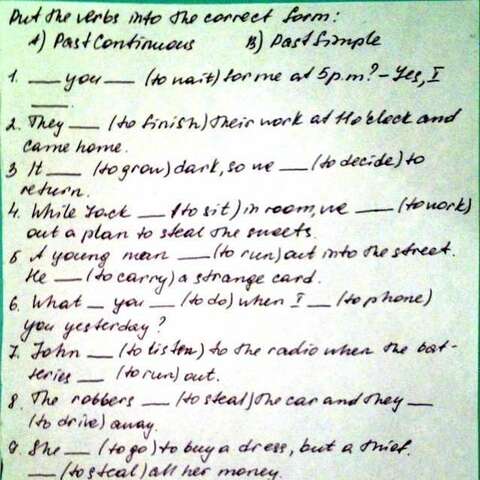 Put the verbs into the correct form:
A) Past Continuous B) Past Simple
1. __ you __ (to wait) for me at 5 p.m? - Yes, I
__.
2. They __ (to finish) their work at 4 o'clock and
came home.
3 It __ (to grow) dark, so we __ (to decide) to
return.
4. While Jack __ (to sit) in room, we __ (to work)
out a plan to steal the sweets.
5 A young man __ (to run) out into the street.
He __ (to carry) a strange card.
6. What _ you __ (to do) when I __ (to phone)
you yesterday?
7. John __ (to listen) to the radio when the bat-
teries __ (to run) out.
8. The robbers __ (to steal) the car and they __
(to drive) away.
9. She __ (to go) to buy a dress, but a thief.
__ (to steal) all her money.